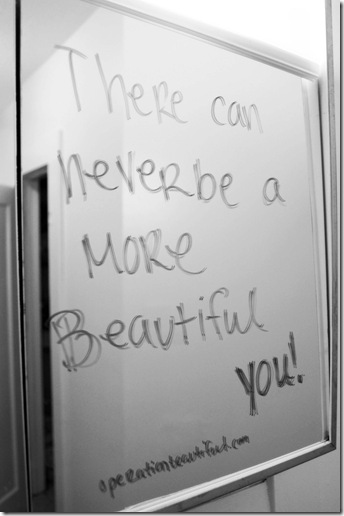 There can
never be a
more
Beautiful
you!
operationbeautiful.com